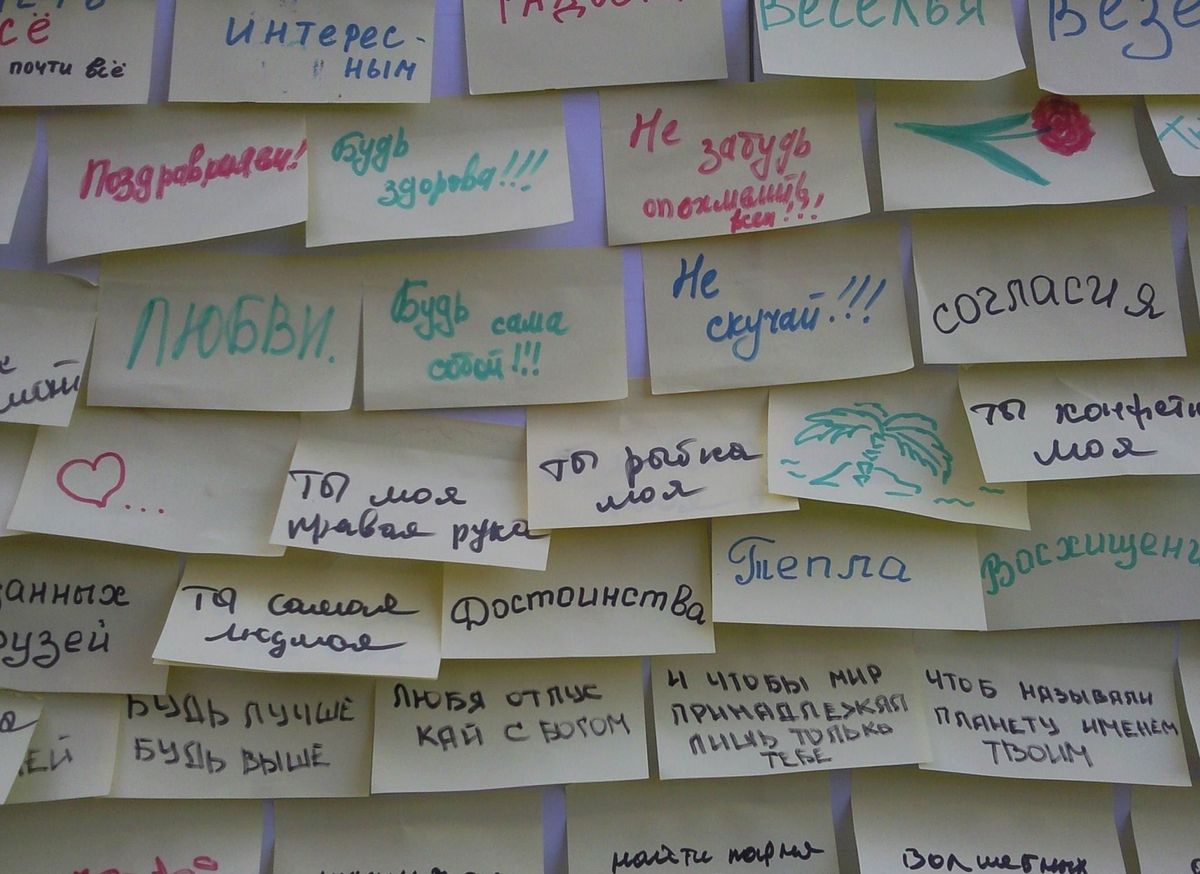 сё
почти всё
интерес-
ным
Веселья
Везе
Поздравляем!
Будь
здорова!!!
Не
забудь
опохмелить
всех!!!
ЛЮБВИ.
Будь сама
собой!!!
Не
скучай!!!
согласия
...
ты моя
правая рука
ты рыбка
моя
ты конфетк
моя
занных
рузей
ты самая
людмая
Достоинства
Тепла
Васхищень
ей
БУДЬ ЛУЧШЕ
БУДЬ ВЫШЕ
ЛЮБЯ ОТПУС
КАЙ С БОГОМ
И ЧТОБЫ МИР
ПРИНАДЛЕЖАЛ
ЛИШЬ ТОЛЬКО
ТЕБЕ
ЧТОБ НАЗЫВАЛИ
ПЛАНЕТУ ИМЕНЕМ
ТВОИМ
найти парня
волшебных